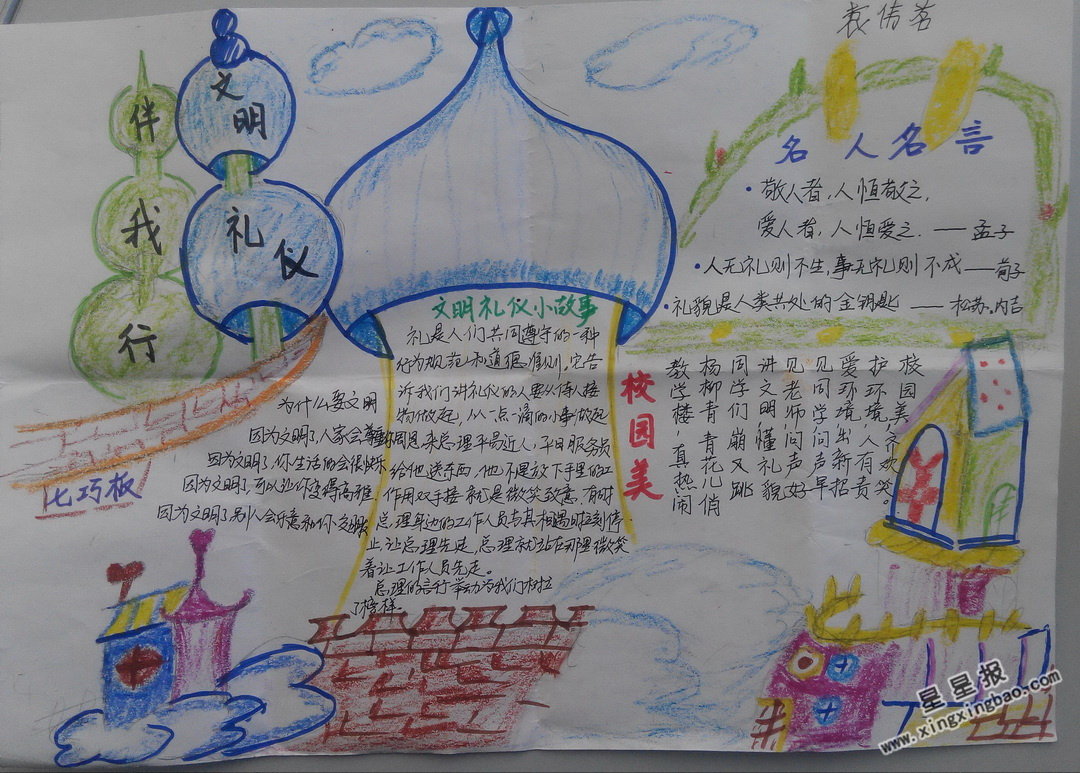 伴我行
文明
礼仪
名人名言
·敬人者,人恒敬之,
爱人者,人恒爱之.——孟子
·人无礼则不生,事无礼则不成——荀子
·礼貌是人类共处的金钥匙——松苏.内吉
文明礼仪小故事
礼是人们共同遵守的一种
行为规范和道德准则.它告
诉我们讲礼仪的人要从待人接
物做起,从一点一滴的小事做起
周恩来总理平易近人,平日服务员
给他送东西,他不是放下手里的工
作用双手接就是微笑致意.有时
总理身边的工作人员与其相遇时立刻停
止,让总理先走,总理就站在那里微笑
着让工作人员先走。
总理的言行举动为我们树立
了榜样。
为什么要文明
因为文明了,人家会尊重你
因为文明了,你生活的会很快乐
因为文明了,可以让你变得高雅
因为文明了别人会乐意和你交朋友
七巧板
校园美
教学楼真热闹
杨柳青青花儿俏
同学们崩又跳
讲文明懂礼貌
见老师问声好
见同学问声早
爱环境,出新招
护环境,人有责
校园美,齐欢笑
星星报
www.xingxingbao.com